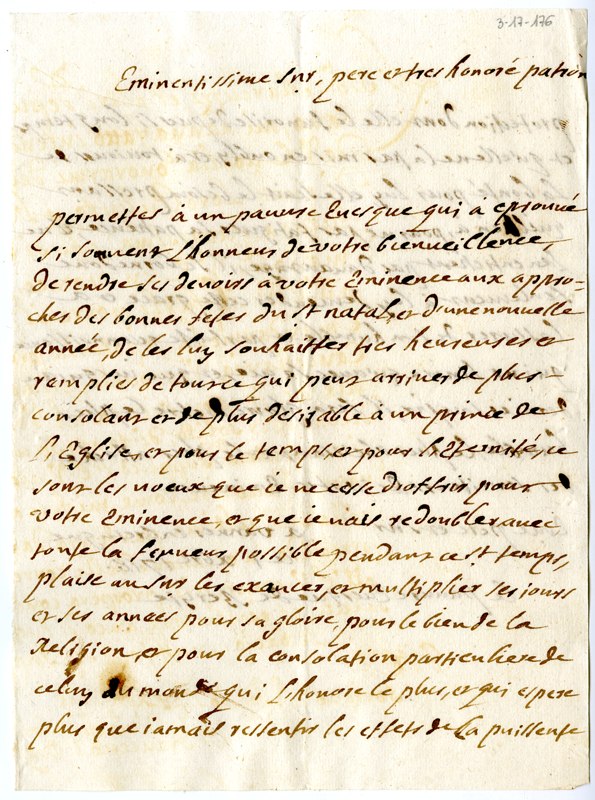 3-17-176
Eminentissime Snr, pere et tres honoré patron
permettes à un pauvre Evesque qui à eprouvé
si souvent L'honneur de votre bienveillence,
de rendre ses devoirs à votre Eminence aux appro-
ches des bonnes fetes du St natal, et d'une nouvelle
année, de les luy souhaitter tres heureuses et
remplies de tout ce qui peut arriver de plus
consolant et de plus desirable à un prince de
L'Eglise, et pour le temps, et pour L'Eternité, ce
sont les voeux que ie ne cesse d'offrir pour
votre Eminence, et que ie vais redoubler avec
toute la ferveur possible pendant ce st temps,
plaise au Snr les exaucer, et multiplier ses jours
et ses années pour sa gloire, pour le bien de la
Religion, et pour la consolation particuliere de
celuy du monde qui L'honore le plus, et qui espere
plus que iamais ressentir les effets de la puissente